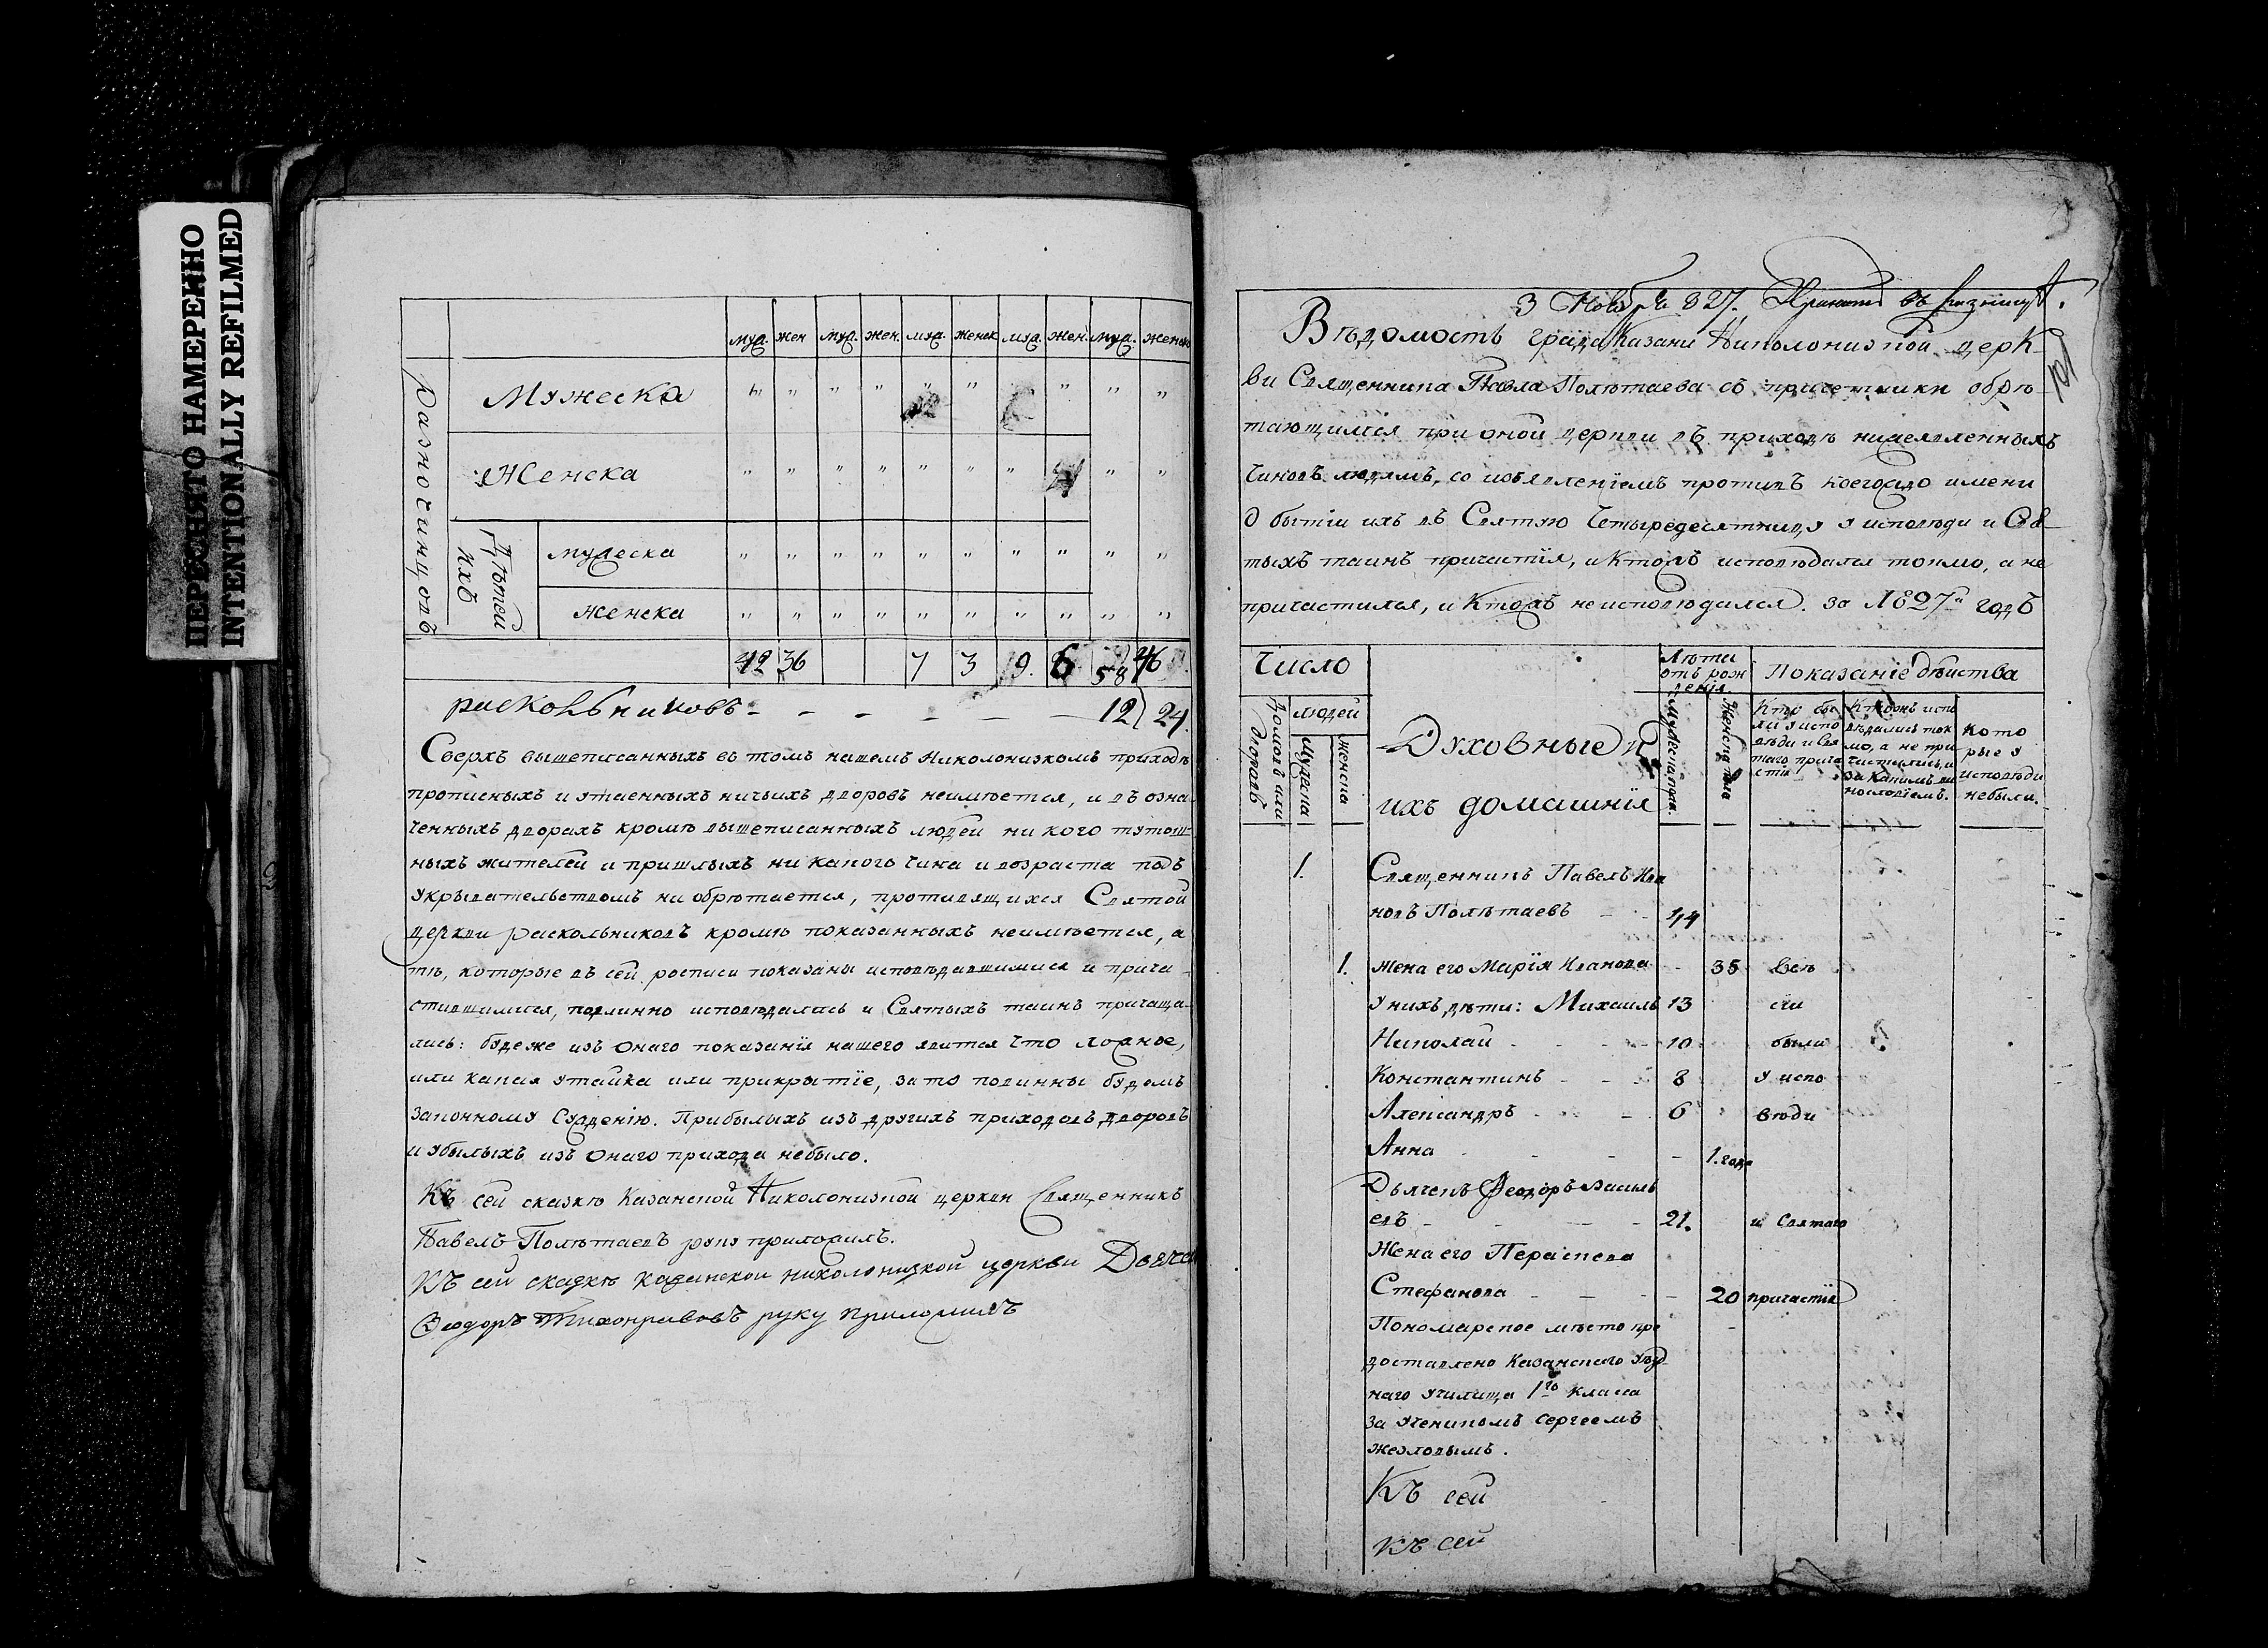 ПЕРЕСНЯТО НАМЕРЕННО
INTENTIONALLY REFILMED
муж. жен муж. жен. муж. женск муж. жен. муж. женск
Разночинцовъ
Мужеска " " " " " " " " "
Женска " " " " " " " " "
Дѣтей ихъ
мужеска " " " " " " " " " "
женска " " " " " " " " " "
42 36 7 3 9. 6 58 46
раскольниковъ - - - - - - 12 24
Сверхъ вышеписанныхъ въ томъ нашемъ Николонизкомъ приходѣ
прописныхъ и утаенныхъ ничьихъ дворовъ неимѣется, и въ озна-
ченныхъ дворахъ кромѣ вышеписанныхъ людей ни кого тутош-
ныхъ жителей и пришлыхъ ни какого чина и возраста подъ
укрывательствомъ ни обрѣтается, противящихся Святой
церкви раскольниковъ кромѣ показанныхъ неимѣется, а
тѣ, которые въ сей росписи показаны исповѣдавшимися и прича-
стившимися, подлинно исповѣдались и Святыхъ таинъ причаща-
лись: будеже изъ онаго показанія нашего явится что ложное,
или какая утайка или прикрытіе, за то повинны будемъ
законному Сужденію. Прибылыхъ изъ другихъ приходовъ дворовъ
и убылыхъ изъ онаго прихода небыло.
Къ сей сказкѣ Казанской Николонизкой церкви Священникъ
Павелъ Полѣтаевъ руку приложилъ.
Къ сей сказкѣ казанской николонизкой церкви Дьячо
Ѳеодоръ Тихонравовъ руку приложилъ
3 Ноября 827.
Вѣдомость града Казани Николонизкой церк-
ви Священника Павла Полѣтаева съ причетники обрѣ
тающимся при оной церкви въ приходѣ нижеявленныхъ
чиновъ людямъ, со изъявленіемъ противъ коегождо имени
о бытіи ихъ въ Святую Четыредесятницу у исповѣди и Свя-
тыхъ таинъ причастія, и ктожъ исповѣдался токмо, а не
причастился, и ктожъ неисповѣдался. за 1827й годъ
Число
Домовъ или дворовъ
людей
Мужеска
женска
Духовные и
ихъ домашнія
Лѣта
отъ рож
денія.
Мужеска пола.
Женска пола
Показаніе дѣйства
Кто бы
ли у испо
вѣди и Свя
таго прича
стія
Ктожъ испо
вѣдались ток
мо, а не при
частились, и
за какимъ ви
нословіемъ.
Кото
рые у
исповѣди
небыли.
1. Священникъ Павелъ Ива
новъ Полѣтаевъ - - 44
1. жена его Марія Иванова - 35 Всѣ
У нихъ дѣти: Михаилъ 13 сіи
Николай - - - 10 были
Константинъ - - 8 у испо
Александръ - - 6 вѣди
Анна - - - 1.года
Дьячекъ Ѳеодоръ Василь
евъ - - - - 21. и Святаго
Жена его Параскева
Стефанова - - - - 20 причастія
Пономарское мѣсто пре
доставлено Казанскаго уѣзд-
наго училища 1го класса
за Ученикомъ Сергеемъ
Жезловымъ.
Къ сей
Къ сей